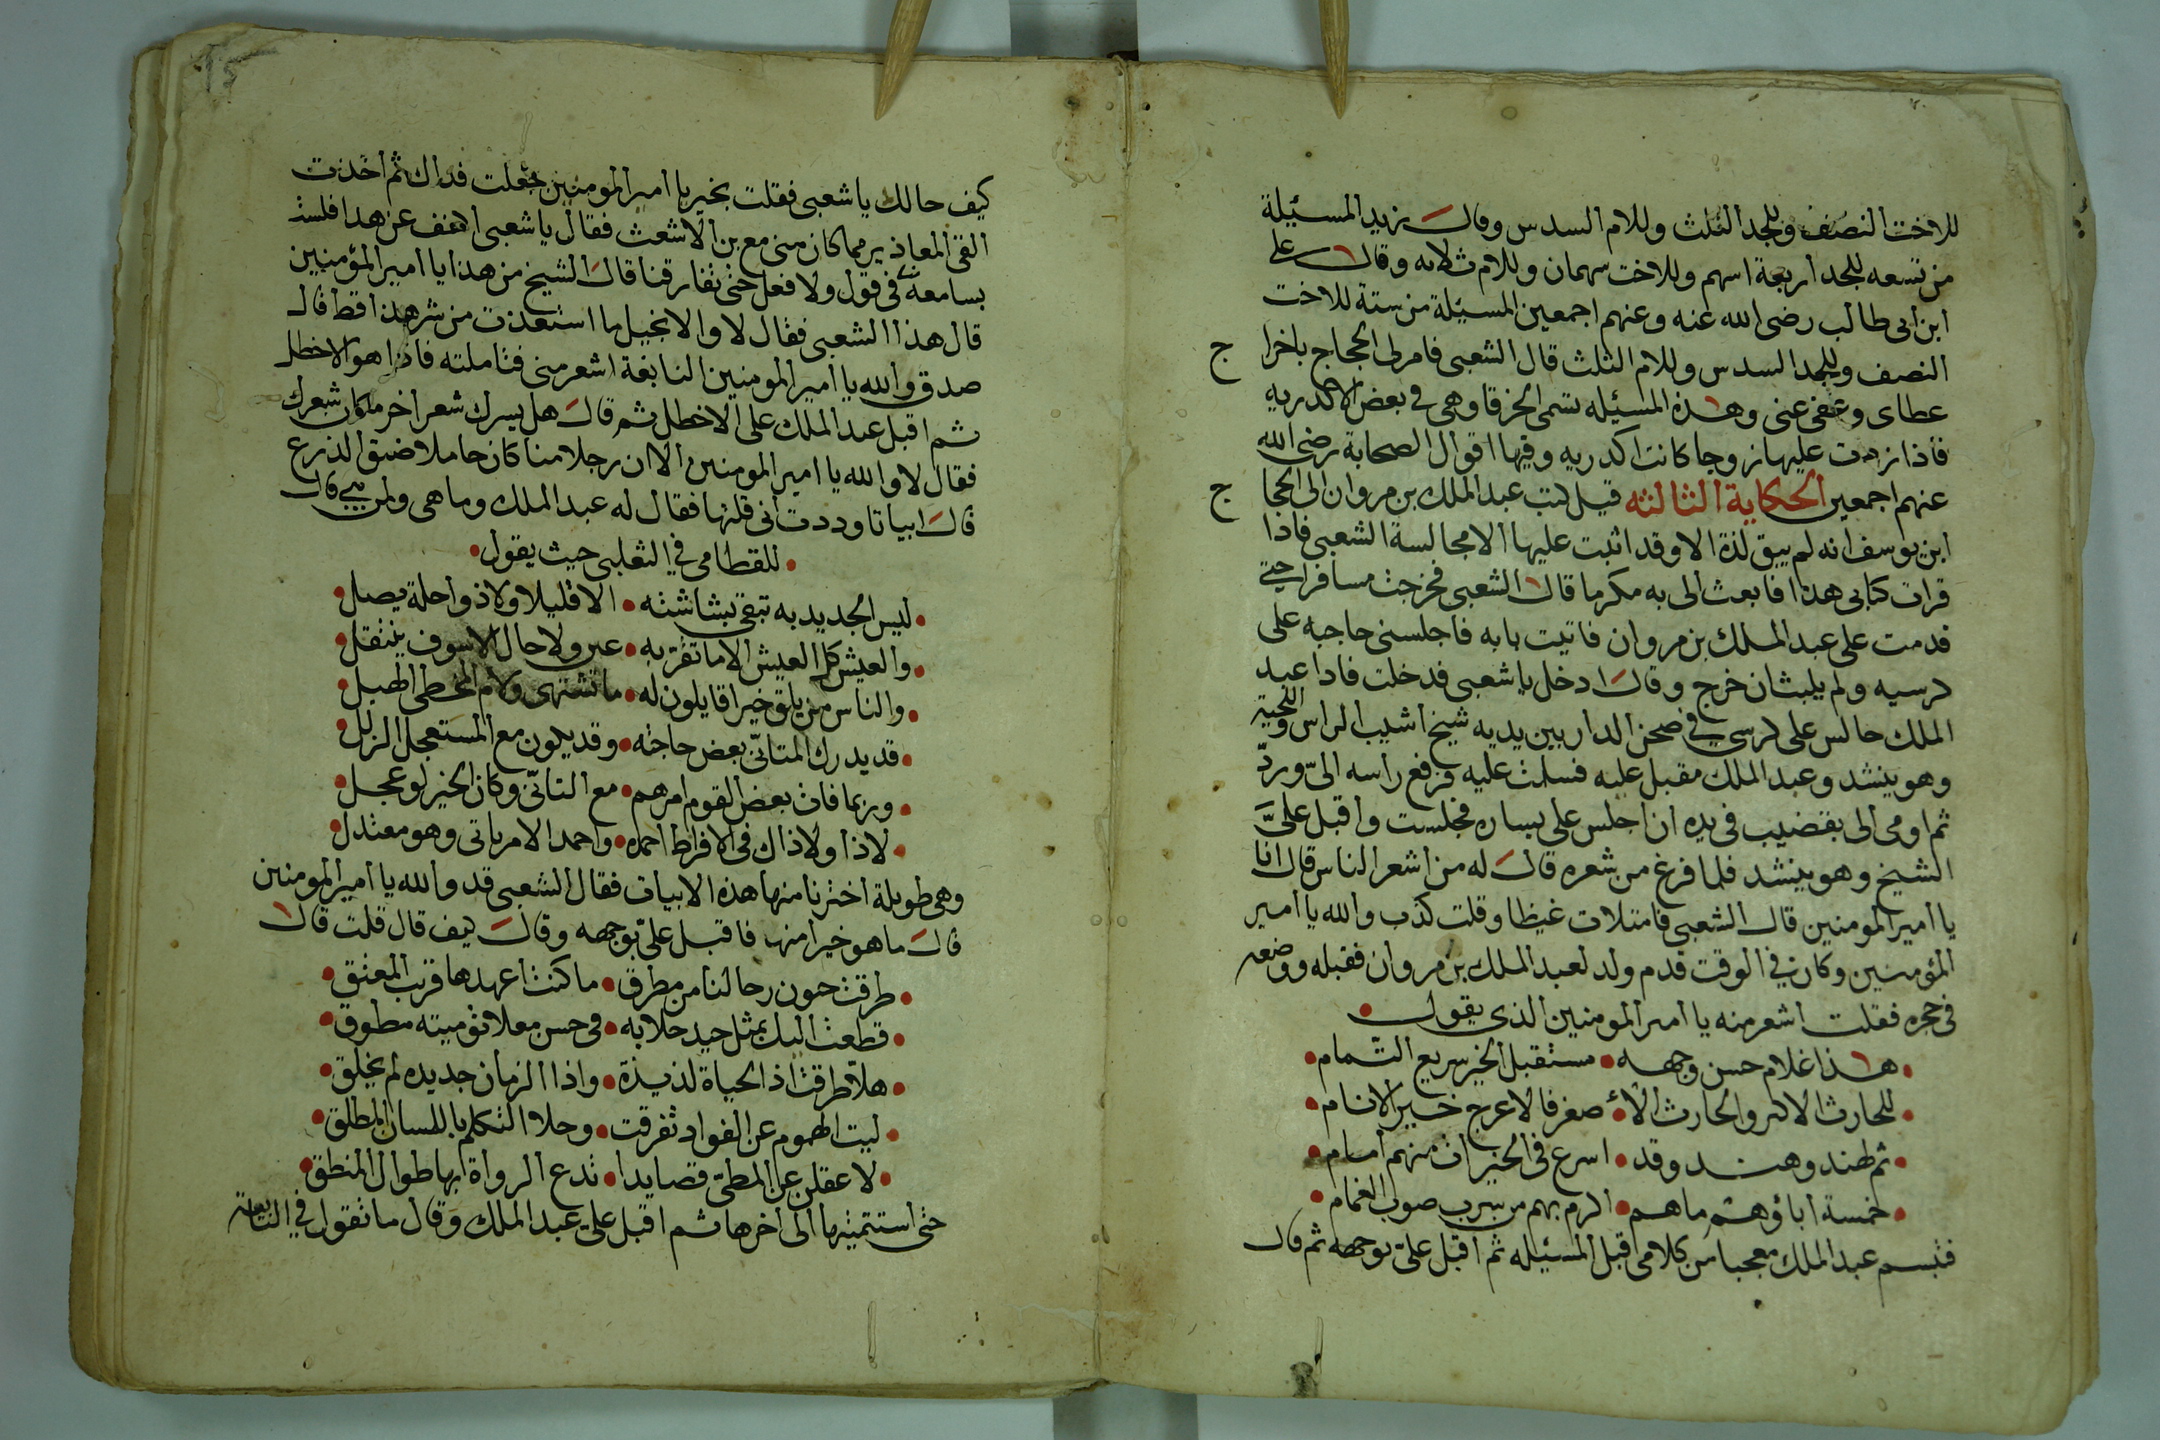 للاخت النصف وللجد الثلث وللام السدس وقال زيد المسئيلة
من تسعه للجد اربعة اسهم وللاخت سهمان وللام ثلاثه وقال على
ابن ابى طالب رضى الله عنه وعنهم اجمعين المسئيلة من ستة للاخت
النصف وللجد السدس وللام الثلث قال الشعبى فامر لى الحجاج باخراج
عطاى وعفى عنى وهذه المسئيله تسمى الخرقا وهى فى بعض الاكدريه
فاذا زدت عليها زوجا كانت اكدريه وفيها اقوال الصحابة رضى الله
عنهم اجمعين الحكاية الثالثه قيل كتب عبد الملك بن مروان الى الحجاج
ابن يوسف انه لم يبق لذة الا وقد اتيت عليها الا مجالسة الشعبى فاذا
قرات كتابى هذا فابعث الى به مكرما قال الشعبى فخرجت مسافرا حتى
قدمت على عبد الملك بن مروان فاتيت بابه فاجلسنى حاجبه على
كرسيه ولم يلبث ان خرج وقال ادخل يا شعبى فدخلت فاذا عبد
الملك جالس على كرسى فى صحن الدار بين يديه شيخ اشيب الراس واللحية
وهو ينشد وعبد الملك مقبل عليه فسلمت عليه فرفع راسه الىّ وردّ
ثم اومى الى بقضيب فى يده ان اجلس على يساره فجلست واقبل علىَّ
الشيخ وهو ينشد فلما فرغ من شعره قال له من اشعر الناس قال انا
يا امير المومنين قال الشعبى فامتلات غيظا وقلت كذب والله يا امير
المؤمنين وكان فى الوقت قدم ولد لعبد الملك بن مروان فقبله ووضعه
فى حجره فقلت اشعر منه يا امير المومنين الذى يقول
هذا غلام حسن وجهه • مستقبل الخير سريع التمام
للحارث الاكبر والحارث الأ • صغر فالاعرج خير الانام
ثم لهند وهند وقد • اسرع فى الخيرات منهم امام
خمسة اباؤهم ما هم • اكرم بهم من شرب صوب الغمام
فتبسم عبد الملك معجبا من كلامى قبل المسئيله ثم اقبل علىّ بوجهه ثم قال
كيف حالك يا شعبى فقلت بخير يا امير المومنين جعلت فداك ثم اخذت
القى المعاذير مما كان منى مع بن الاشعث فقال يا شعبى اعفف عن هذا فلست
بسامعه فى قول ولا فعل حتى تفارقنا قال الشيخ من هذا يا امير المؤمنين
قال هذا الشعبى فقال لا والانجيل ما استعذت من شر هذا قط قال
صدق والله يا امير المومنين النابغة اشعر منى فتاملته فاذا هو الاخطل
ثم اقبل عبد الملك على الاخطل ثم قال هل يسرك شعرا اخر مكان شعرك
فقال لا والله يا امير المومنين الا ان رجلا منا كان حاملا ضيق الذرع
قال ابياتا وددت انى قلتها فقال له عبد الملك وما هى ولمن هى قال
للقطامى فى الثعلبى حيث يقول
ليس الجديد به تبقى بشاشته • الا قليلا ولا ذو احلة يصل
والعيش كل العيش الا ما تقرّ به • عين ولا حال الا سوف ينتقل
والناس من يلق خيرا قايلون له • ما تشتهى ولام المخطى الهبل
قد يدرك المتانّى بعض حاجته • وقد يكون مع المستعجل الزلل
وربما فات بعض القوم امرهم • مع التانّى وكان الخير لو عجل
لا ذا ولا ذاك فى الافراط احمده • واحمد الامر ياتى وهو معتدل
وهى طويلة اخترنا منها هذه الابيات فقال الشعبى قد والله يا امير المومنين
قال ما هو خير منها فاقبل علىّ بوجهه وقال كيف قال قلت قال
طرقت جون رحالنا من مطرق • ما كنت اعهدها قرب المعتق
قطعت اليك بمثل جيد حلابه • فى حسن معلا ثوميته مطوق
هلّا طرقت اذ الحياة لذيذة • واذا الزمان جديده لم يخلق
ليت الهموم عن الفواد تفرقت • وحلا التكلم باللسان المطلق
لا عقلن عن المطىّ قصايدا • تدع الرواة ابها طوال المنطق
حتى استتميتها الى اخرها ثم اقبل علىّ عبد الملك وقال ما تقول فى النابغة